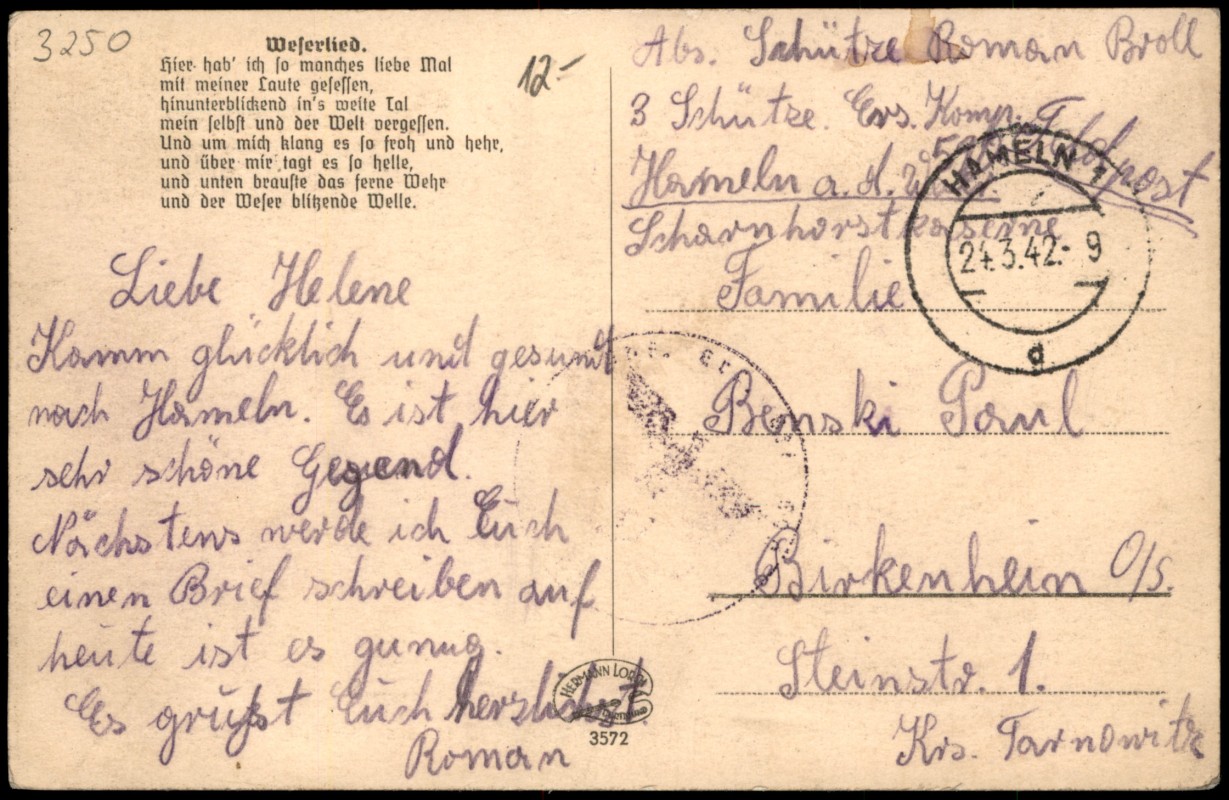 3250
Weserlied.
Hier hab' ich so manches liebe Mal
mit meiner Laute gesessen,
hinunterblickend in's weite Tal
mein selbst und der Welt vergessen.
Und um mich klang es so froh und hehr,
und über mir tagt es so helle,
und unten brauste das ferne Wehr
und der Weser blitzende Welle.
12.-
Liebe Helene
Kamm glücklich und gesund
nach Hameln. Es ist hier
sehr schöne Gegend.
Nächstens werde ich Euch
einen Brief schreiben auf
heute ist es gunug.
Es grüßt Euch herzlichst
Roman
Abs. Schütze Roman Broll
3 Schütze. Ers. Komp.
Hameln a. d.
Scharnhorstkaserne
Feldpost
HAMELN 1
24.3.42.-9
d
Familie
Benski Paul
Birkenhein O/S.
Steinstr. 1.
Krs. Tarnowitz
HERMANN
3572